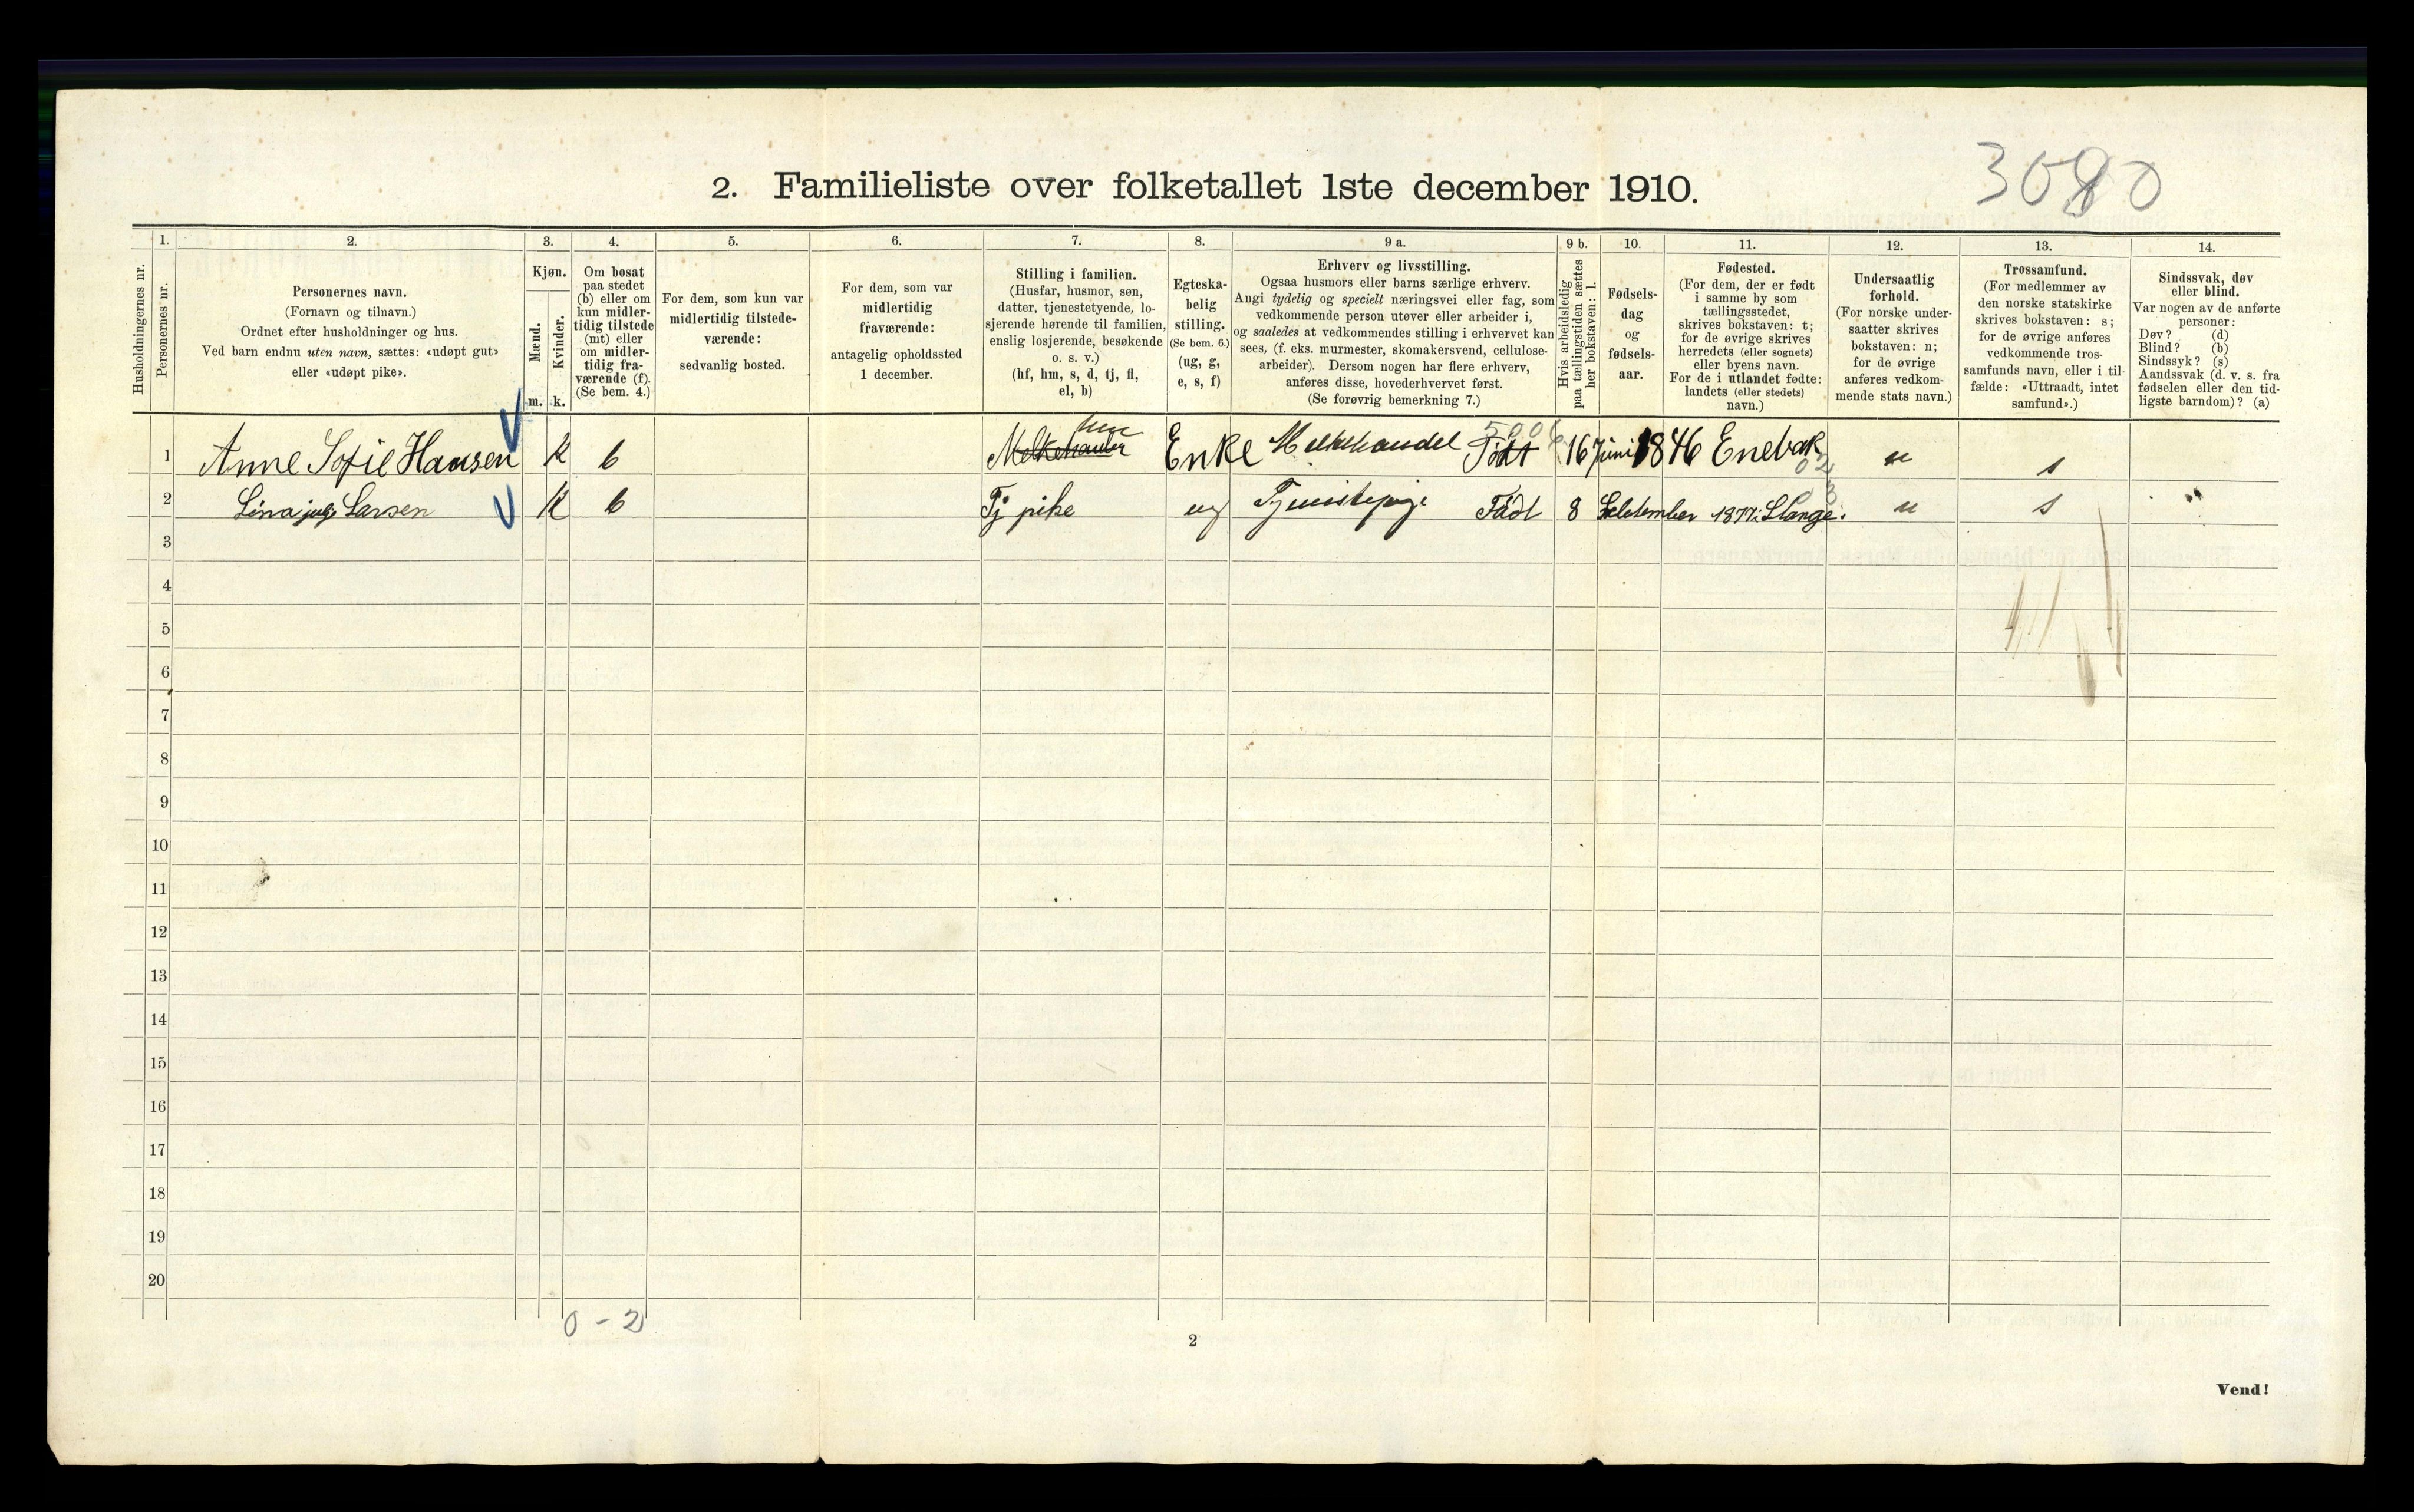 3080
2. Familieliste over folketallet 1ste december 1910.
Husholdningernes nr.
1.
Personernes nr.
2.
Personernes navn.
(Fornavn og tilnavn.)
Ordnet efter husholdninger og hus.
Ved barn endnu uten navn, sættes: «udøpt gut»
eller «udøpt pike».
3.
Kjøn.
Mænd.
Kvinder.
m.
k.
4.
Om bosat
paa stedet
(b) eller om
kun midler-
tidig tilstede
(mt) eller
om midler-
tidig fra-
værende (f).
(Se bem. 4.)
5.
For dem, som kun var
midlertidig tilstede-
værende:
sedvanlig bosted.
6.
For dem, som var
midlertidig
fraværende:
antagelig opholdssted
1 december.
7.
Stilling i familien.
(Husfar, husmor, søn,
datter, tjenestetyende, lo-
sjerende hørende til familien,
enslig losjerende, besøkende
o. s. v.)
(hf, hm, s, d, tj, fl,
el, b)
8.
Egteska-
belig
stilling.
(Se bem. 6.)
(ug, g,
e, s, f)
9 a.
Erhverv og livsstilling.
Ogsaa husmors eller barns særlige erhverv.
Angi tydelig og specielt næringsvei eller fag, som
vedkommende person utøver eller arbeider i,
og saaledes at vedkommendes stilling i erhvervet kan
sees, (f. eks. murmester, skomakersvend, cellulose-
arbeider). Dersom nogen har flere erhverv,
anføres disse, hovederhvervet først.
(Se forøvrig bemerkning 7.)
9 b.
Hvis arbeidsledig
paa tællingstiden sættes
her bokstaven: l.
10.
Fødsels-
dag
og
fødsels-
aar.
11.
Fødested.
(For dem, der er født
i samme by som
tællingsstedet,
skrives bokstaven: t;
for de øvrige skrives
herredets (eller sognets)
eller byens navn.
For de i utlandet fødte:
landets (eller stedets)
navn.)
12.
Undersaatlig
forhold.
(For norske under-
saatter skrives
bokstaven: n;
for de øvrige
anføres vedkom-
mende stats navn.)
13.
Trossamfund.
(For medlemmer av
den norske statskirke
skrives bokstaven: s;
for de øvrige anføres
vedkommende tros-
samfunds navn, eller i til-
fælde: «Uttraadt, intet
samfund».)
14.
Sindssvak, døv
eller blind.
Var nogen av de anførte
personer:
Døv? (d)
Blind? (b)
Sindssyk? (s)
Aandssvak (d. v. s. fra
fødselen eller den tid-
ligste barndom)? (a)
1 Anne Sofie Hansen K b hm Enke Melkehandel Født 16 juni 1846 Enebak n s
2 Lina Larsen K b Tj pike ug Født 8 1877 Stange. n s
3
4
5
6
7
8
9
10
11
12
13
14
15
16
17
18
19
20
0 - 2
2
Vend!